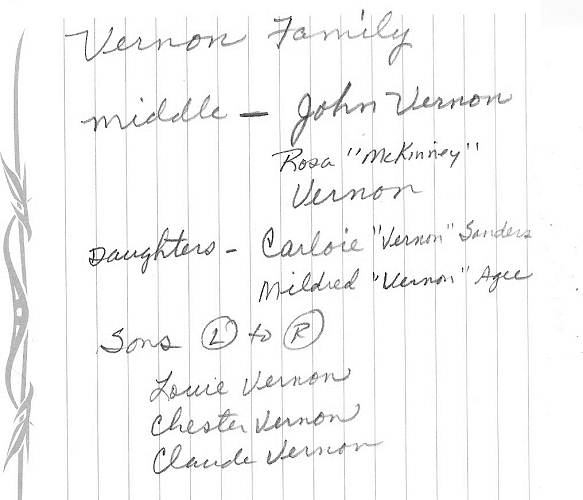 Vernon Family
Middle - John Vernon
Rosa "McKinney"
Vernon
Daughters - Carloie "Vernon" Sanders
Mildred "Vernon" Agee
Sons L to R
Louie Vernon
Chester Vernon
Claude Vernon